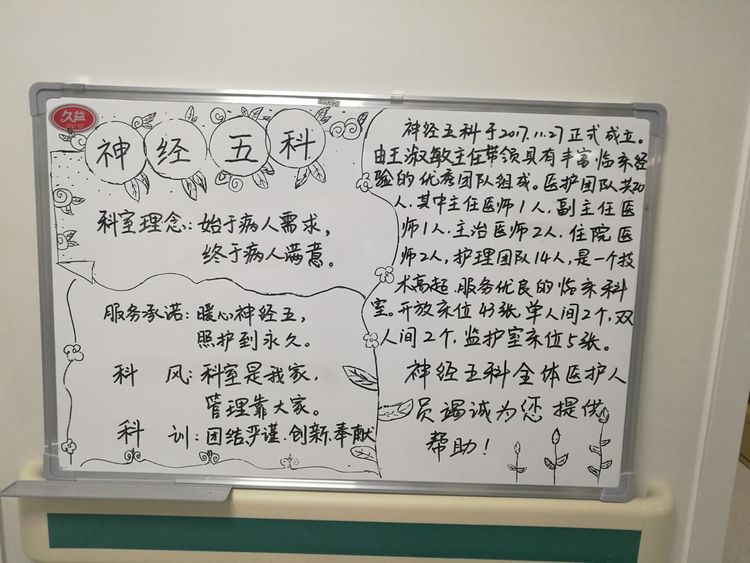 久益
神经五科
科室理念:始于病人需求,
终于病人满意。
服务承诺:暖心神经五,
照护到永久。
科 风:科室是我家,
管理靠大家。
科 训:团结严谨、创新、奉献
神经五科于2017.11.27正式成立。
由王淑敏主任带领具有丰富临床经
验的优秀团队组成。医护团队共20
人,其中主任医师1人,副主任医
师1人,主治医师2人,住院医
师2人,护理团队14人,是一个技
术高超、服务优良的临床科
室。开放床位43张,单人间2个,双
人间2个,监护室床位5张。
神经五科全体医护人
员竭诚为您提供
帮助!